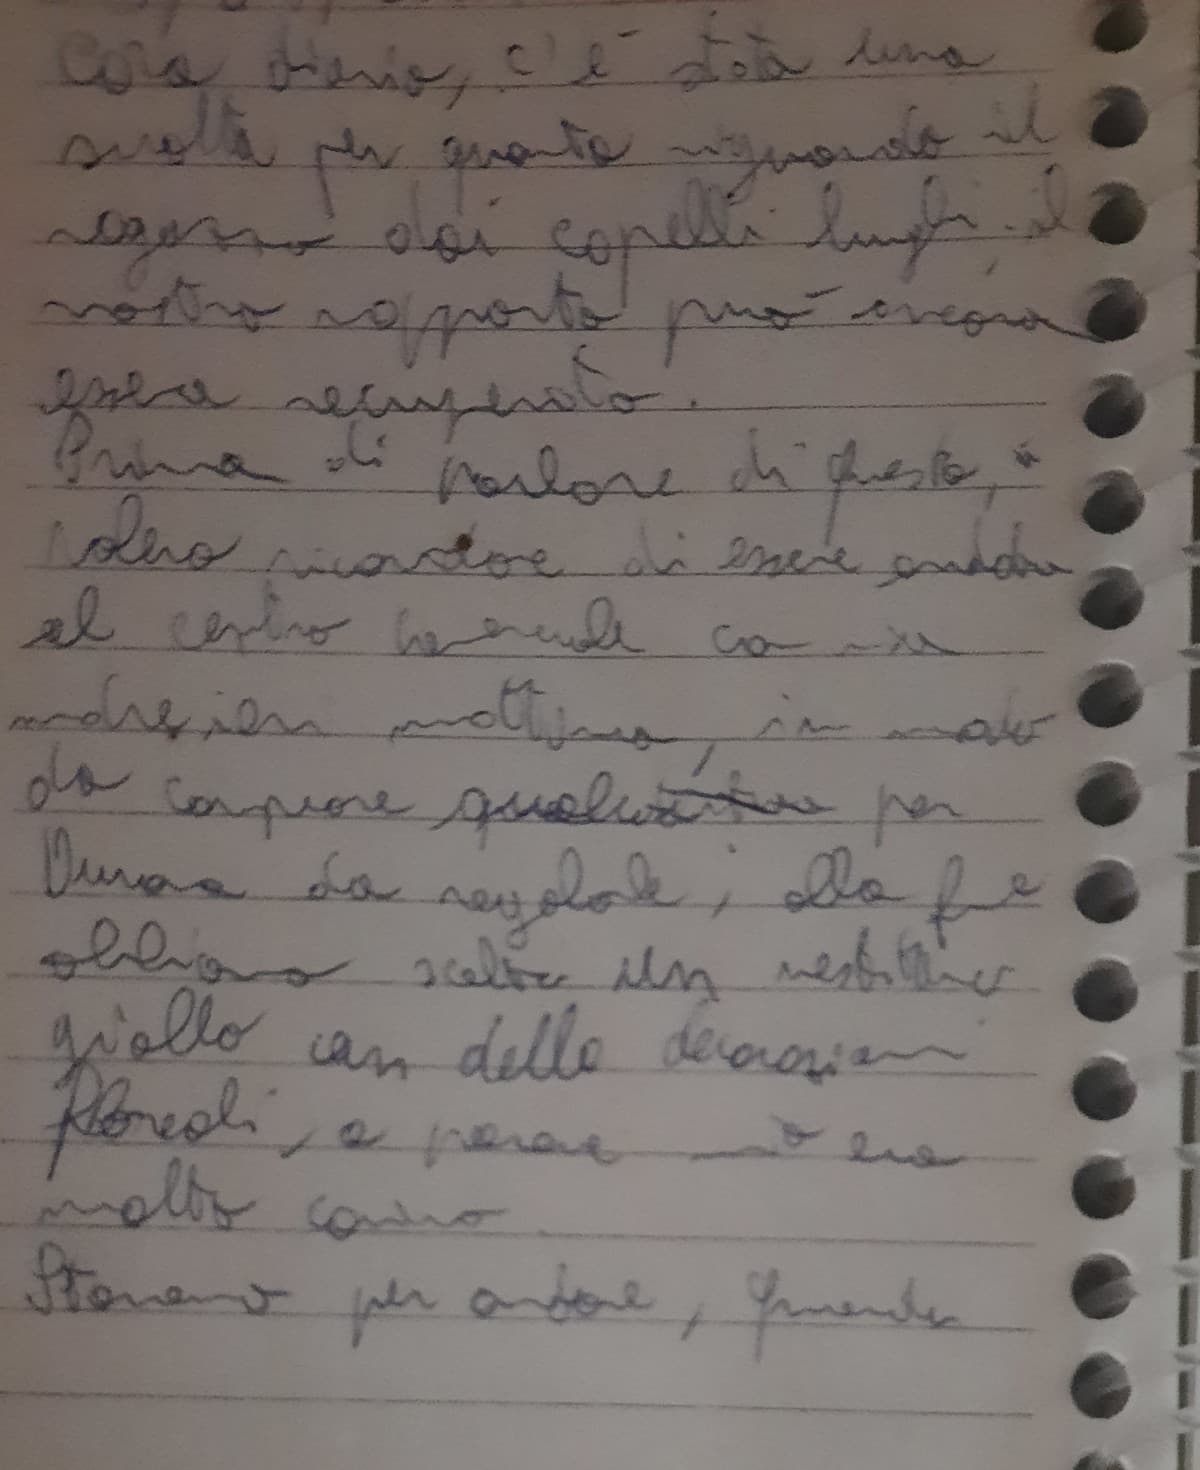 Caro diario, c'è stata una
svolta per quanto riguarda il
ragazzo dai capelli lunghi, il
nostro rapporto può ancora
essere recuperato.
Prima di parlare di questo,
volevo ricordare di essere andata
al centro commerciale con mia
madre, ieri mattina, in modo
da comprare per
da regalarle, alla fine
abbiamo scelto un vestitino
giallo con delle decorazioni
floreali, a parer mio era
molto carino
Stavamo per andare, quando